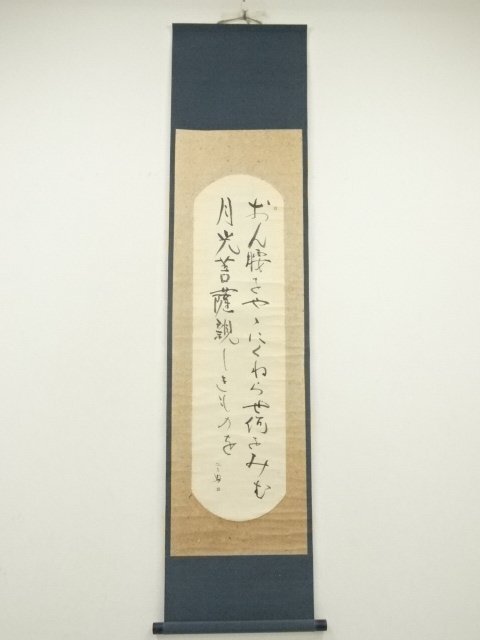 おん腰をやゝにくねらせ何をみむ
月光菩薩親しきものを